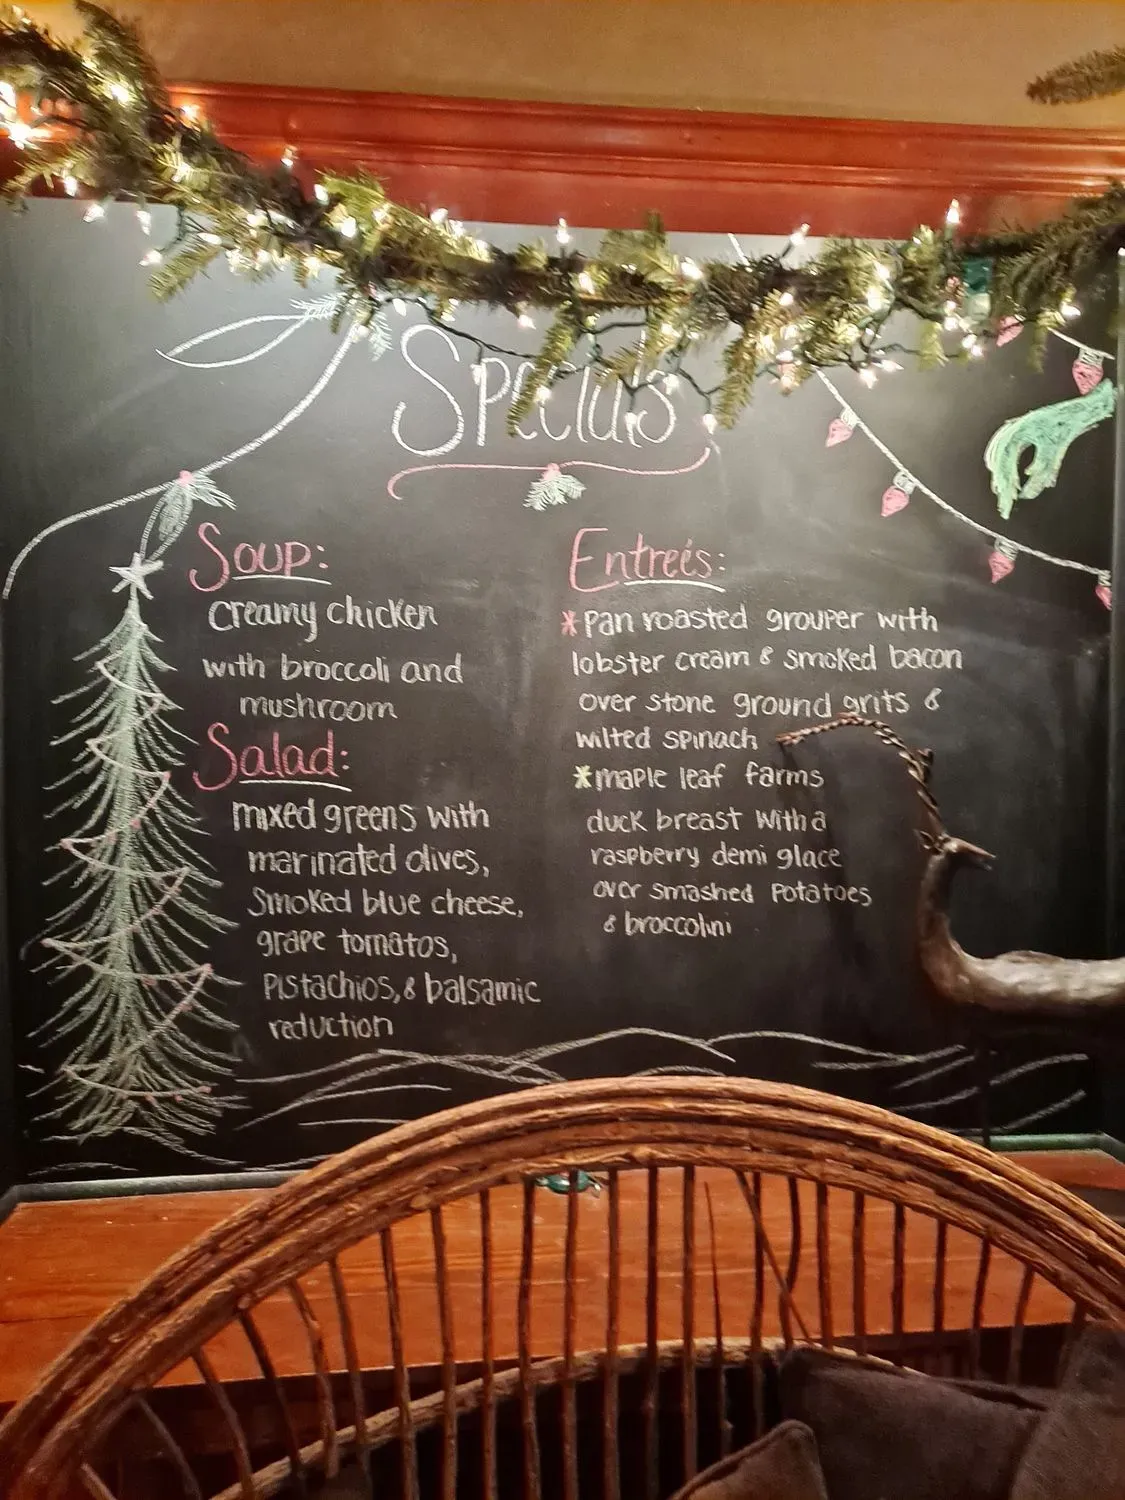 Specials
Soup:
creamy chicken
with broccoli and
mushroom
Salad:
mixed greens with
marinated olives,
smoked blue cheese,
grape tomatos,
pistachios, & balsamic
reduction
Entreés:
*Pan roasted grouper with
lobster cream & smoked bacon
over stone ground grits &
wilted spinach
*maple leaf farms
duck breast with a
raspberry demi glace
over smashed potatoes
& broccolini